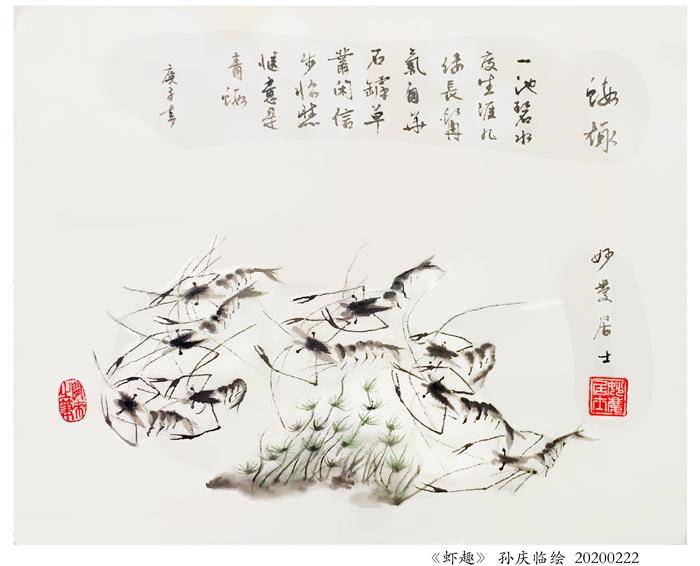 蝦趣
一池碧水
度生涯几
缕長髯
氣自華
石罅草
叢闲信
步悠然
惬意是
青蝦
庚子春
妙居士
《虾趣》 孙庆临绘 20200222